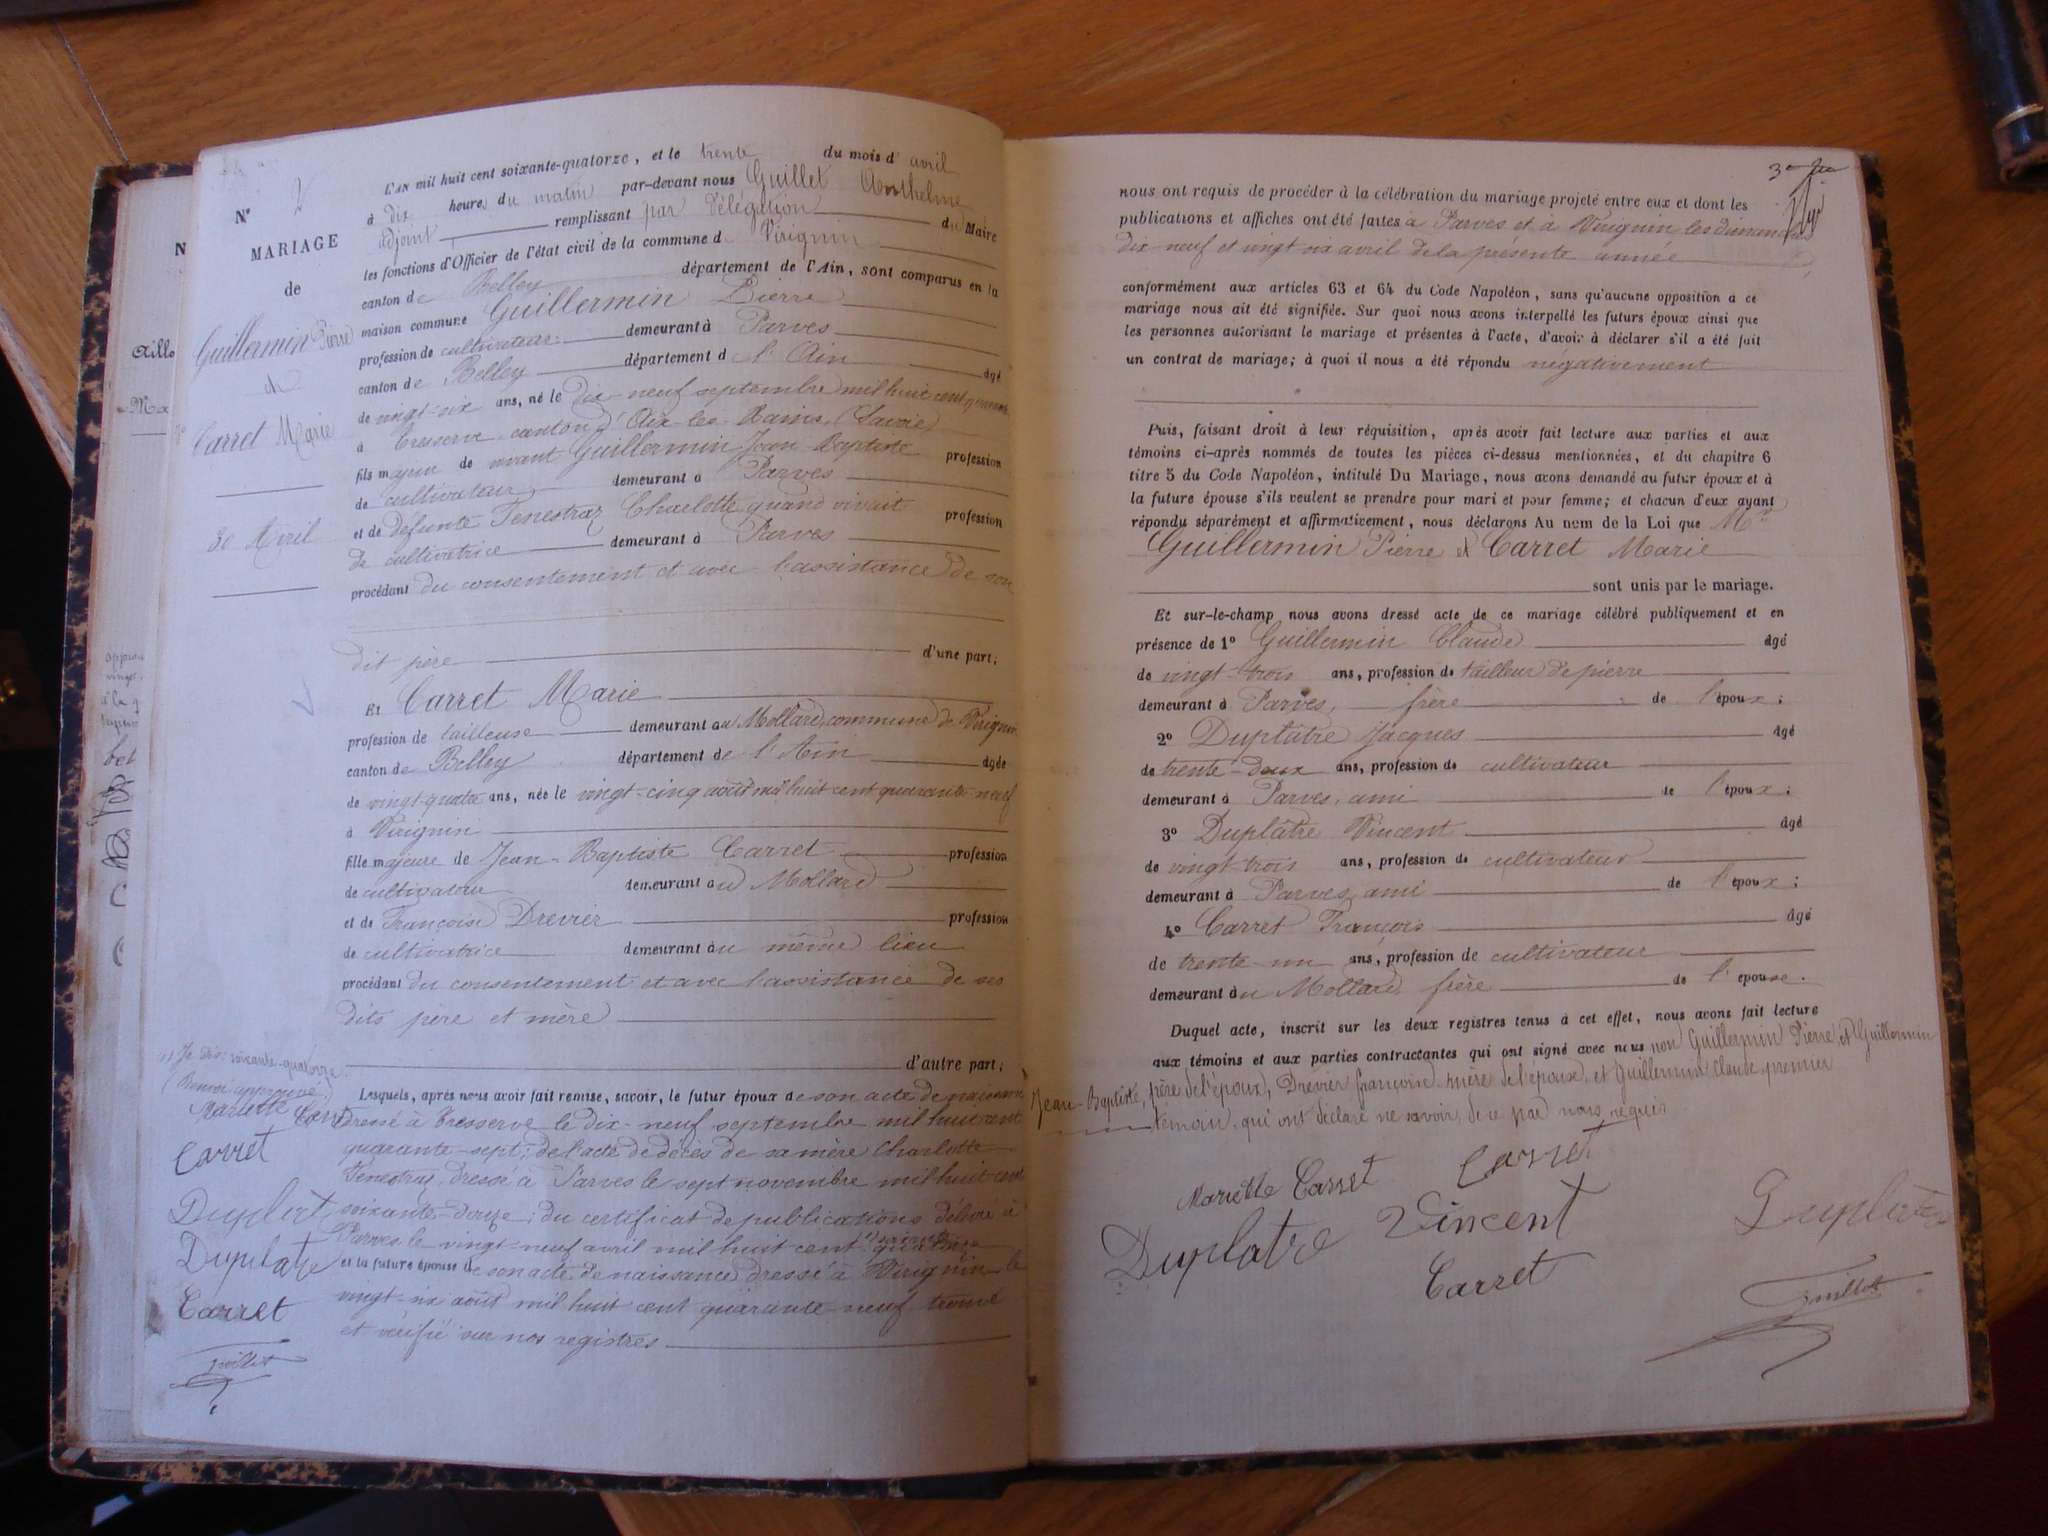 N° 2
MARIAGE
de
Guillermin Pierre
et
Carret Marie
30 Avril
L'AN mil huit cent soixante-quatorze, et le trente du mois d' avril
à dix heures du matin par-devant nous Guillet Anthelme
adjoint remplissant par délégation du Maire
les fonctions d'Officier de l'état civil de la commune de Virignin
canton de Belley département de l'Ain, sont comparus en la
maison commune Guillermin Pierre
profession de cultivateur demeurant à Parves
canton de Belley département de l'Ain âgé
de vingt-six ans, né le dix-neuf septembre mil huit cent quarante
à Tresserve canton d'Aix-les-Bains (Savoie)
fils majeur de vivant Guillermin Jean-Baptiste profession
de cultivateur demeurant à Parves
et de défunte Fenestraz Charlotte quand vivait profession
de cultivatrice demeurant à Parves
procédant du consentement et avec l'assistance de son
dit père d'une part;
Et Carret Marie
profession de tailleuse demeurant au Mollard, commune de Virignin
canton de Belley département de l'Ain âgée
de vingt-quatre ans, née le vingt-cinq août mil huit cent quarante-neuf
à Virignin
fille majeure de Jean-Baptiste Carret profession
de cultivateur demeurant au Mollard
et de Françoise Drevier profession
de cultivatrice demeurant au même lieu
procédant du consentement et avec l'assistance de ses
dits père et mère
d'autre part;
Lesquels, après nous avoir fait remise, savoir, le futur époux de son acte de naissance
dressé à Tresserve le dix-neuf septembre mil huit cent
quarante-sept; de l'acte de décès de sa mère Charlotte
Fenestraz, dressé à Parves le sept novembre mil huit cent
soixante-douze; du certificat de publications délivré à
Parves le vingt-neuf avril mil huit cent
et la future épouse de son acte de naissance dressé à Virignin le
vingt-six août mil huit cent quarante-neuf trouvé
et vérifié sur nos registres
soixante-quatorze
Renvoi approuvé
Mariette Carret
Carret
Duplatre
Duplatre
Carret
Guillet
nous ont requis de procéder à la célébration du mariage projeté entre eux et dont les
publications et affiches ont été faites à Parves et à Virignin les dimanches
dix-neuf et vingt-six avril de la présente année
conformément aux articles 63 et 64 du Code Napoléon, sans qu'aucune opposition à ce
mariage nous ait été signifiée. Sur quoi nous avons interpellé les futurs époux ainsi que
les personnes autorisant le mariage et présentes à l'acte, d'avoir à déclarer s'il a été fait
un contrat de mariage; à quoi il nous a été répondu négativement
Puis, faisant droit à leur réquisition, après avoir fait lecture aux parties et aux
témoins ci-après nommés de toutes les pièces ci-dessus mentionnées, et du chapitre 6
titre 5 du Code Napoléon, intitulé Du Mariage, nous avons demandé au futur époux et à
la future épouse s'ils veulent se prendre pour mari et pour femme; et chacun d'eux ayant
répondu séparément et affirmativement, nous déclarons Au nom de la Loi que
Guillermin Pierre et Carret Marie
sont unis par le mariage.
Et sur-le-champ nous avons dressé acte de ce mariage célébré publiquement et en
présence de 1° Guillermin Claude âgé
de vingt-trois ans, profession de tailleur de pierre
demeurant à Parves, frère de l'époux;
2° Duplâtre Jacques âgé
de trente-deux ans, profession de cultivateur
demeurant à Parves, ami de l'époux;
3° Duplâtre Vincent âgé
de vingt-trois ans, profession de cultivateur
demeurant à Parves, ami de l'époux;
4° Carret François âgé
de trente-un ans, profession de cultivateur
demeurant au Mollard, frère de l'épouse.
Duquel acte, inscrit sur les deux registres tenus à cet effet, nous avons fait lecture
aux témoins et aux parties contractantes qui ont signé avec nous non Guillermin Pierre, et Guillermin
Jean-Baptiste, père de l'époux, Drevier françoise mère de l'épouse, et Guillermin Claude premier
témoin, qui ont déclaré ne savoir, de ce par nous requis
Mariette Carret Carret
Duplatre Vincent Duplatre
Carret
Guillet